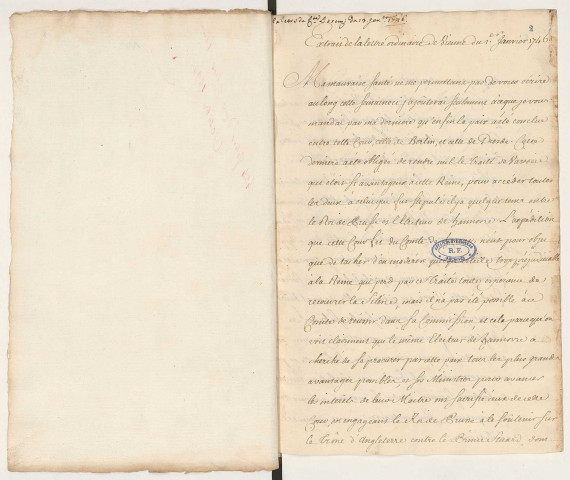 8
Extrait de la lettre ordinaire de Vienne du 1er Janvier 1746
Ma mauvaise santé ne me permettant pas de vous écrire
au long cette semaine j'ajouterai seulement à ce que je vous
mandai par ma derniere qu'enfin la paix a été conclue
entre cette Cour, celle de Berlin, et celle de Dresde. Cette
derniere a été obligée de rendre nul le Traité de Varsovie
que etoit si avantageux à cette Reine, pour acceder toutes
les deux à celui qui fut stipulé il y a quelque tems entre
le Roi de Prusse et l'Electeur de Hannovre. L'expedition
que cette Cour fit du Comte de n'eut pour objet
que de tacher d'en moderer trop préjudiciable
à la Reine qui perd par ce Traité toute esperance de
recouvrer la Silesie, mais il n'a pas été possible a ce
Comte de réussir dans sa Commission, et cela parce qu'on
voit clairement que le même Electeur de Hannovre a
cherché de se procurer par cette paix tous les plus grands
avantages possibles, et ses Ministres pour avancer
les interêts de leur Maitre ont sacrifié ceux de cette
Cour, en engageant le Roi de Prusse à le soutenir sur
le Trône d'Angleterre contre le Prince Stuard, sans
BIBLIOTHEQUE
R.F.